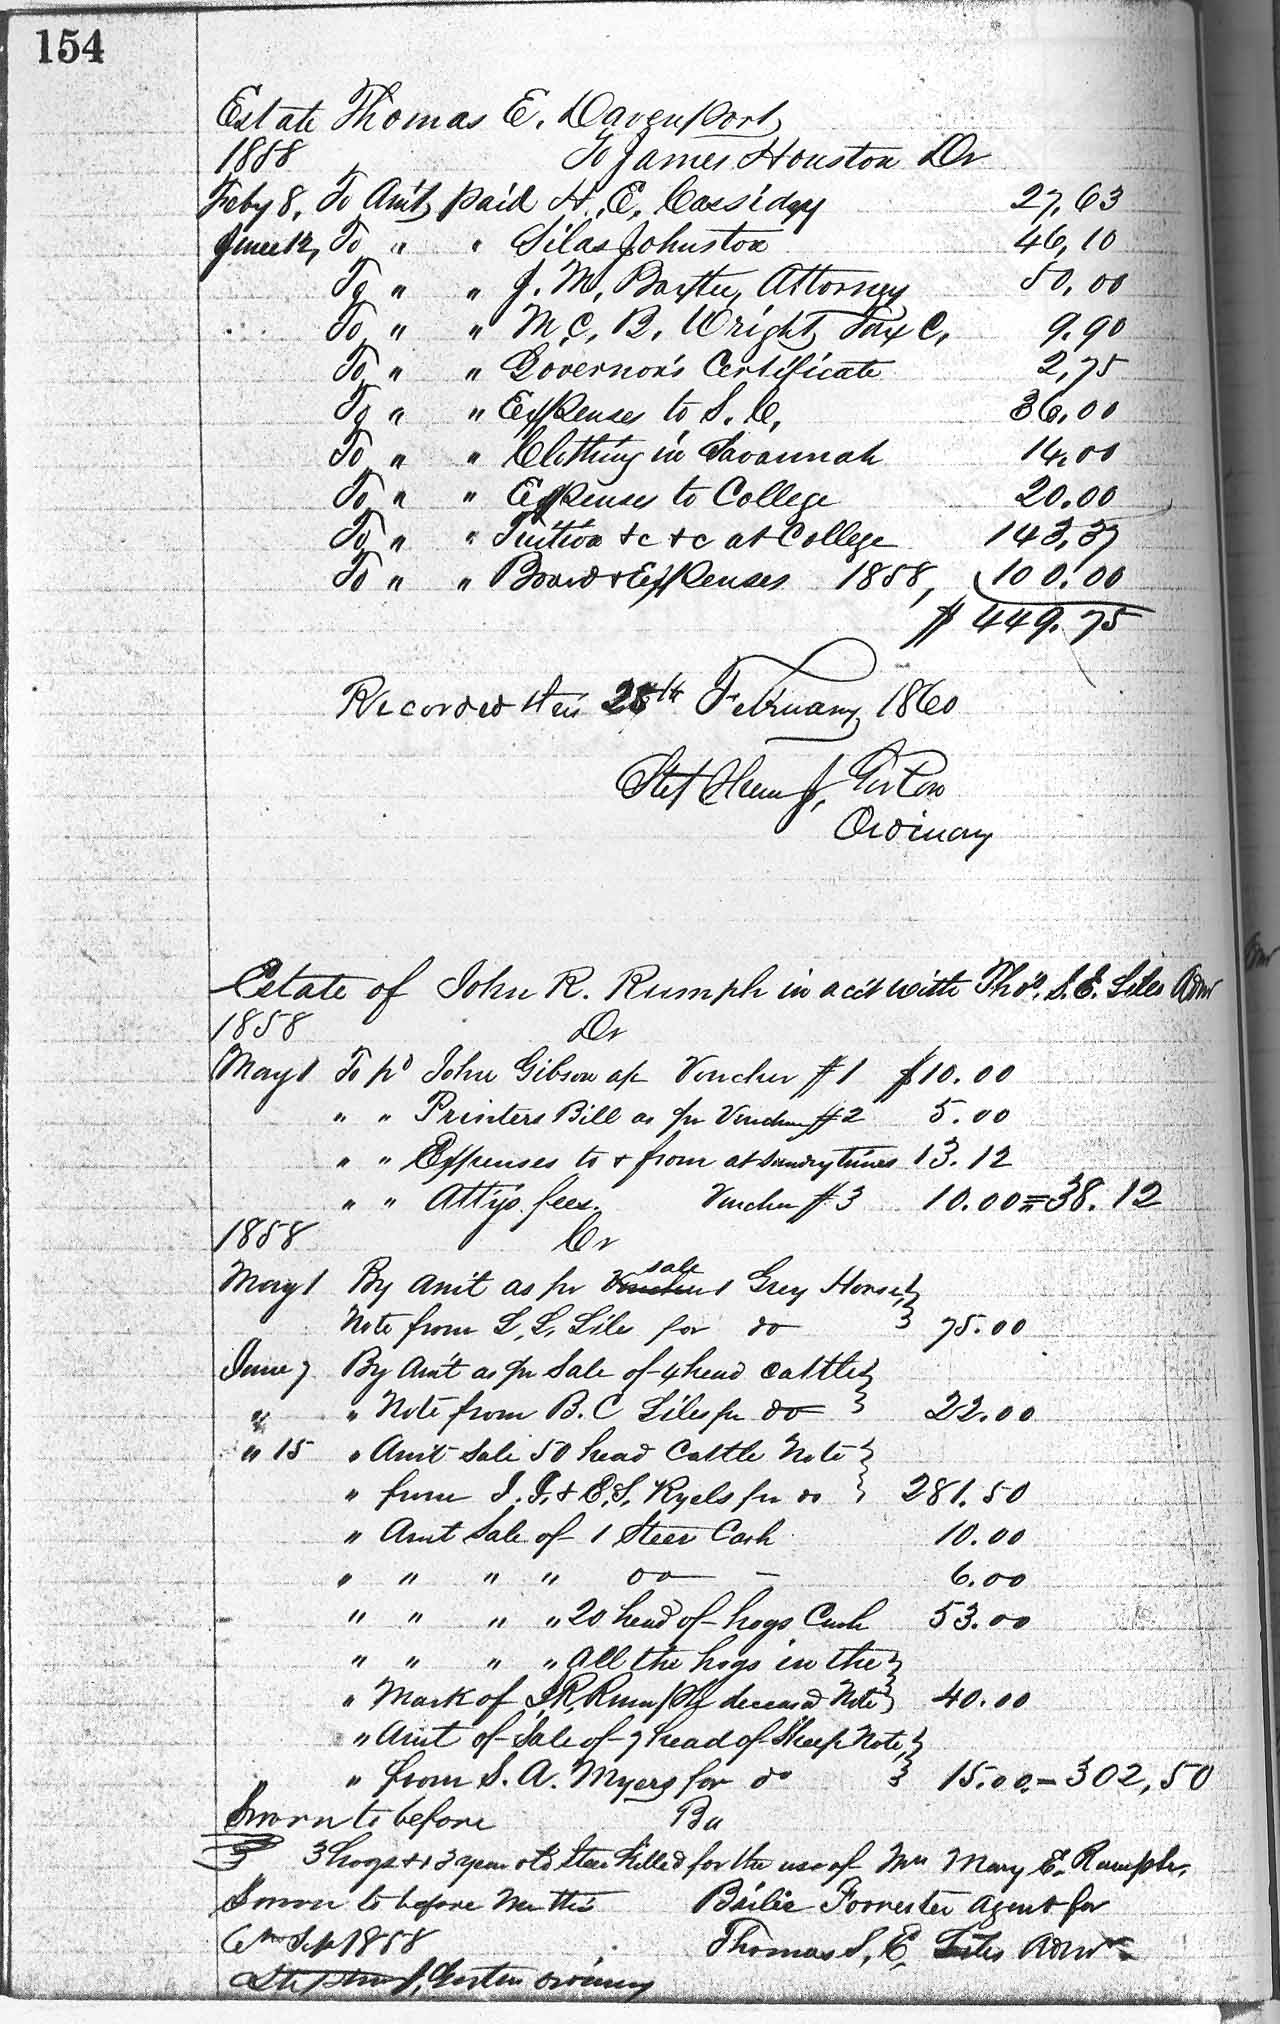 154
Estate Thomas E. Davenport
1858 To James Houston Dr
Feby 8, To Am't paid H. E. Cassidy 27,63
June 12, To " " Silas Johnston 46,10
To " " J. M. Baxter, Attorney 50,00
To " " M. C. B. Wright Tax C. 9.90
To " " Governor's Certificate 2,75
To " " Expenses to S. C. 36,00
To " " Clothing in Savannah 14.00
To " " Expenses to College 20.00
To " " Tuition &c &c at College 143,37
To " " Board & Expenses 1858, 100.00
$ 449.75
Recorded this 28th February 1860
Stephen J,
Ordinary
Estate of John R. Rumph in act with Thos. S. E. Liles Admr
1858 Dr
May 1 To pd John Gibson as pr Voucher #1 $10.00
" " Printers Bill as pr Voucher #2 5.00
" " Expenses to & from at sundry times 13.12
" " Atty's fees. Voucher #3 10.00 = 38.12
1858 Cr
sale
May 1 By Am't as pr Voucher 1 Grey Horse
Note from L. L. Liles for do 75.00
June 7 By Am't as pr Sale of 4 head cattle
" " Note from B. C Liles pr do 22.00
" 15 " Am't Sale 50 head Cattle Note
" from I. I. & E. S. Kyels pr do 281.50
" Amt Sale of 1 Steer Cash 10.00
" " " " do — 6.00
" " " " 20 head of hogs Cash 53.00
" " " " all the hogs in the
" Mark of J. R. Rumph deceased Note 40.00
" Am't of Sale of 7 head of Sheep Note,
" " from S. A. Myers for do 15.00 – 302,50
Sworn to before Ba
3 3 hogs & 1 3 year old steer killed for the use of Mrs Mary E. Rumph.
Sworn to before me this Bailie Forrester Agent for
6th Sep 1858 Thomas S, E, Liles Admr
Stephen J, Ordinary